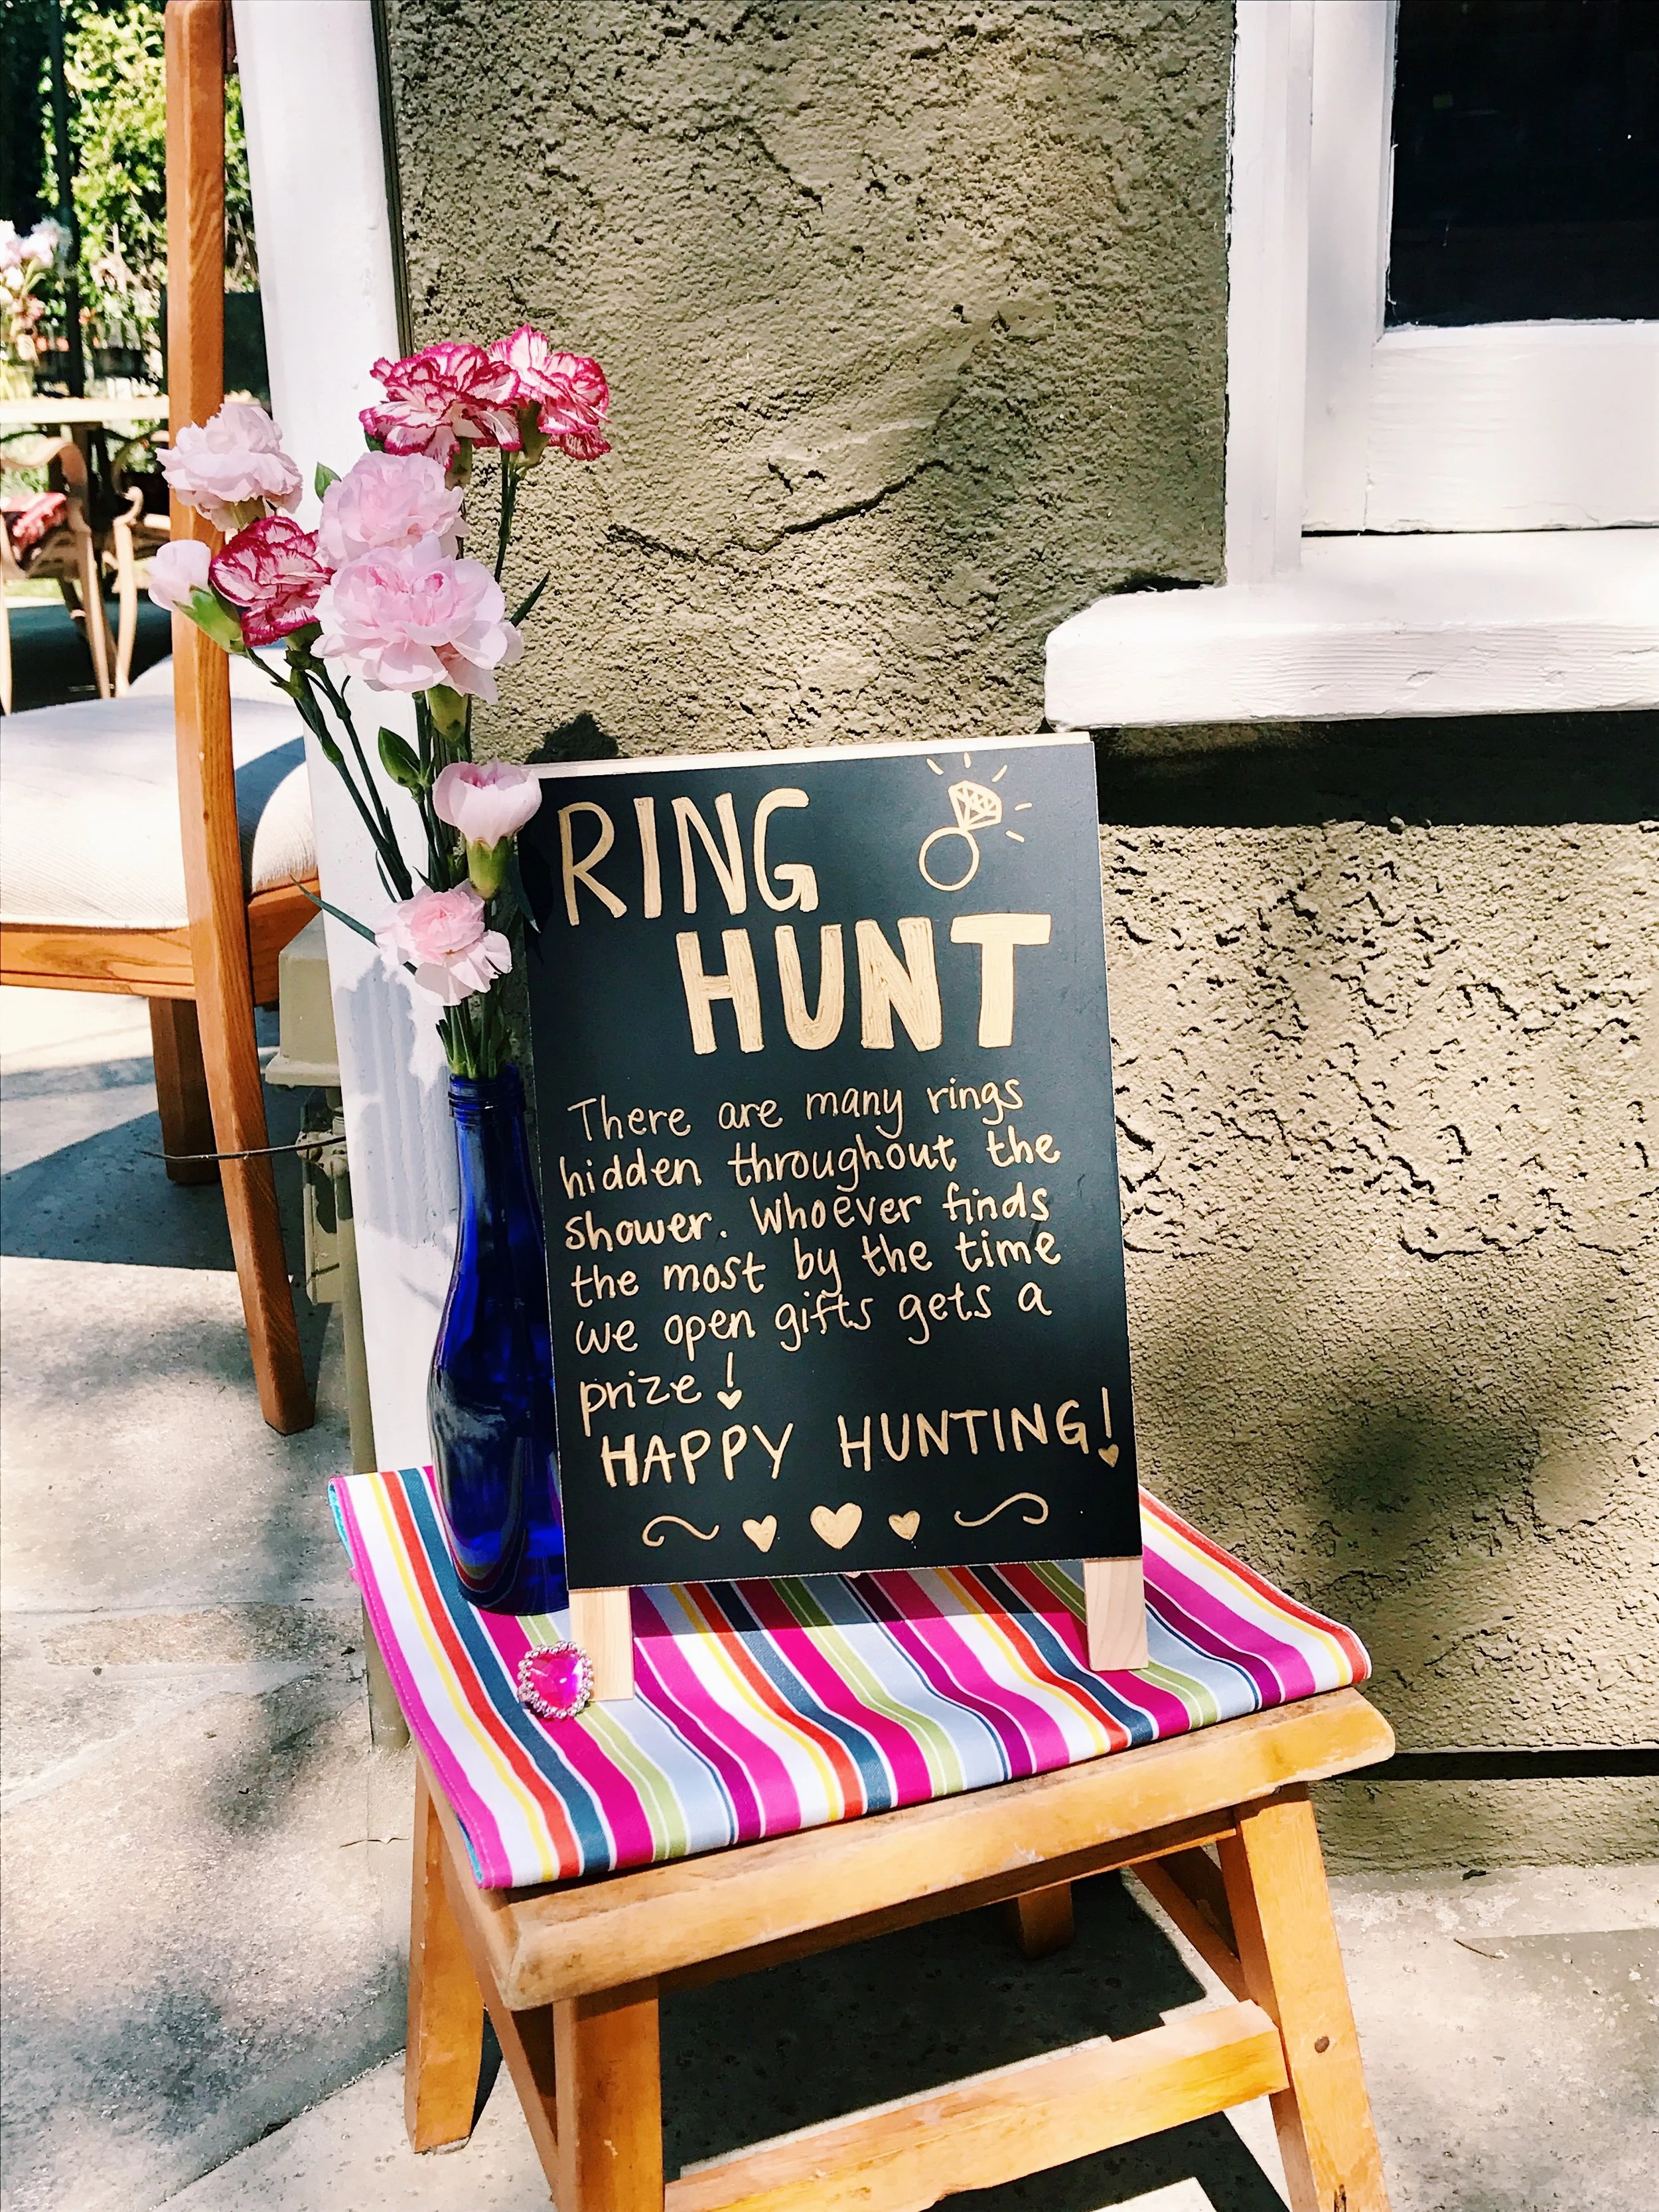 RING
HUNT
There are many rings
hidden throughout the
shower. Whoever finds
the most by the time
we open gifts gets a
prize!
HAPPY HUNTING!